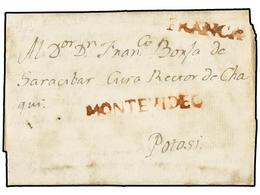 FRANCA
Al D.or D.n Fran.co Borja de
Saracibar Cura Rector de Cha
qui:
MONTEVIDEO
Potosi.